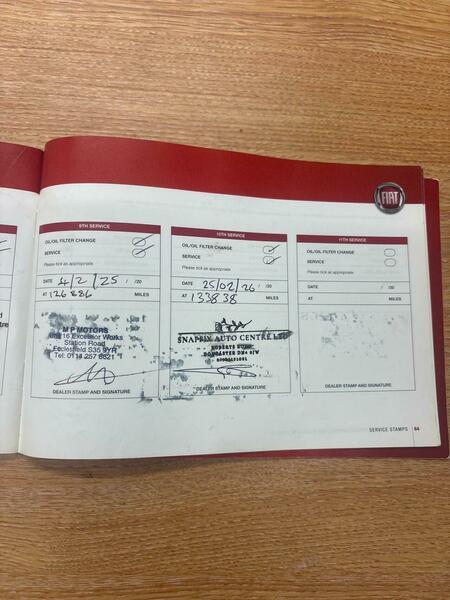 FIAT
9TH SERVICE
OIL/OIL FILTER CHANGE
SERVICE
Please tick as appropriate
DATE 4/2/25 / /20
AT 126886 MILES
M P MOTORS
Unit 16 Excelsior Works
Station Road
Ecclesfield S35 9YR
Tel: 0114 257 8621
DEALER STAMP AND SIGNATURE
10TH SERVICE
OIL/OIL FILTER CHANGE
SERVICE
Please tick as appropriate
DATE 25/02/26 /20
AT 133838 MILES
SNAPPIX AUTO CENTRE LTD
ROBERTS ROAD
DONCASTER DN4 0JW
DEALER STAMP AND SIGNATURE
11TH SERVICE
OIL/OIL FILTER CHANGE
SERVICE
Please tick as appropriate
DATE / /20
AT MILES
DEALER STAMP AND SIGNATURE
SERVICE STAMPS 64